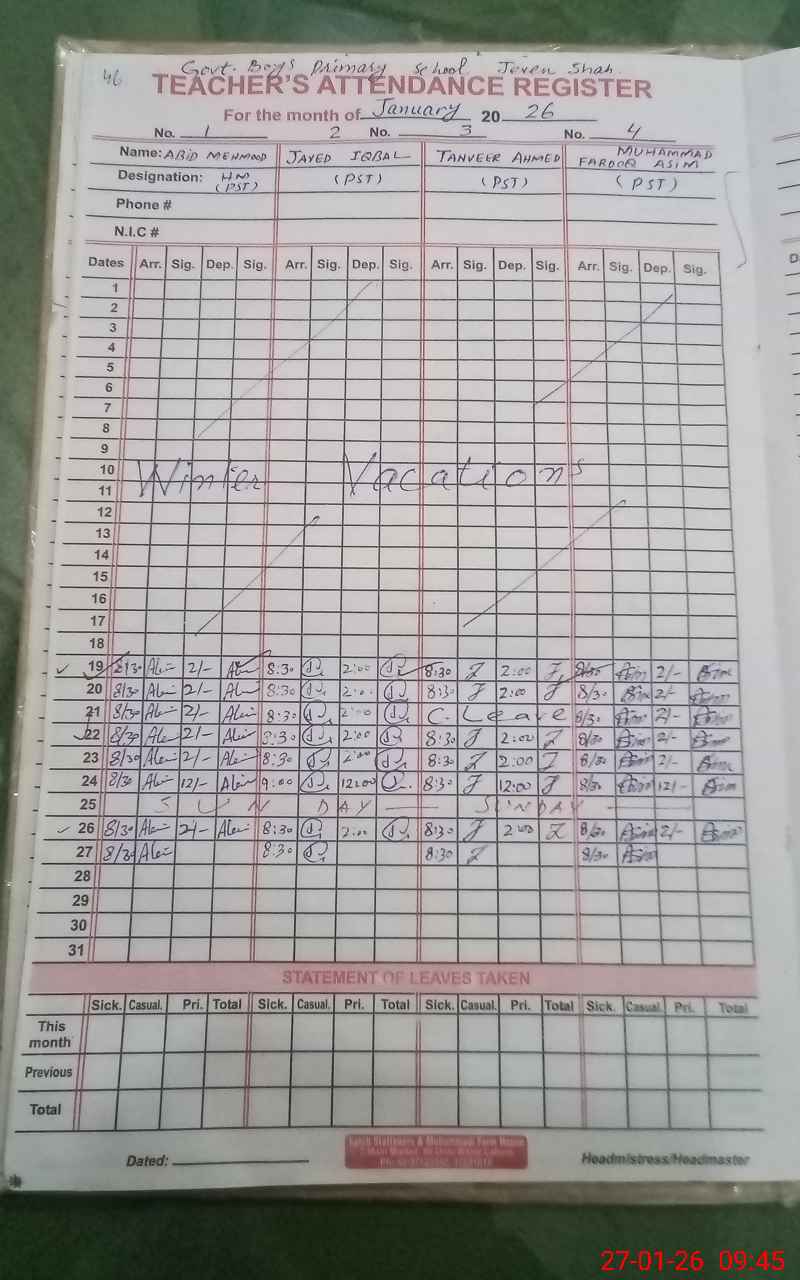 46
Govt. Boys Primary School Jeven Shah.
TEACHER'S ATTENDANCE REGISTER
For the month of January 20 26
No. 1 2 No. 3 No. 4
Name: ABID MEHMOOD JAVED IQBAL TANVEER AHMED MUHAMMAD FAROOQ ASIM
Designation: HM (PST) (PST) (PST) (PST)
Phone #
N.I.C #
Dates Arr. Sig. Dep. Sig. Arr. Sig. Dep. Sig. Arr. Sig. Dep. Sig. Arr. Sig. Dep. Sig.
1
2
3
4
5
6
7
8
9
10 Winter Vacations
11
12
13
14
15
16
17
18
19 8/30 2/- 8:30 2:00 8:30 2:00 8/30 Asim 2/- Asim
20 8/30 2/- 8:30 2:00 8:30 2:00 8/30 Asim 2/- Asim
21 8/30 2/- 8:30 2:00 C. Leave 8/30 Asim 2/- Asim
22 8/30 2/- 8:30 2:00 8:30 2:00 8/30 Asim 2/- Asim
23 8/30 2/- 8:30 2:00 8:30 2:00 8/30 Asim 2/- Asim
24 8/30 12/- 9:00 12:00 8:30 12:00 8/30 Asim 12/- Asim
25 SUN DAY SUNDAY
26 8/30 2/- 8:30 2:00 8:30 2:00 8/30 Asim 2/- Asim
27 8/30 8:30 8:30 8/30 Asim
28
29
30
31
STATEMENT OF LEAVES TAKEN
Sick. Casual. Pri. Total Sick. Casual. Pri. Total Sick. Casual. Pri. Total Sick. Casual. Pri. Total
This month
Previous
Total
Dated: Headmistress/Headmaster
27-01-26 09:45